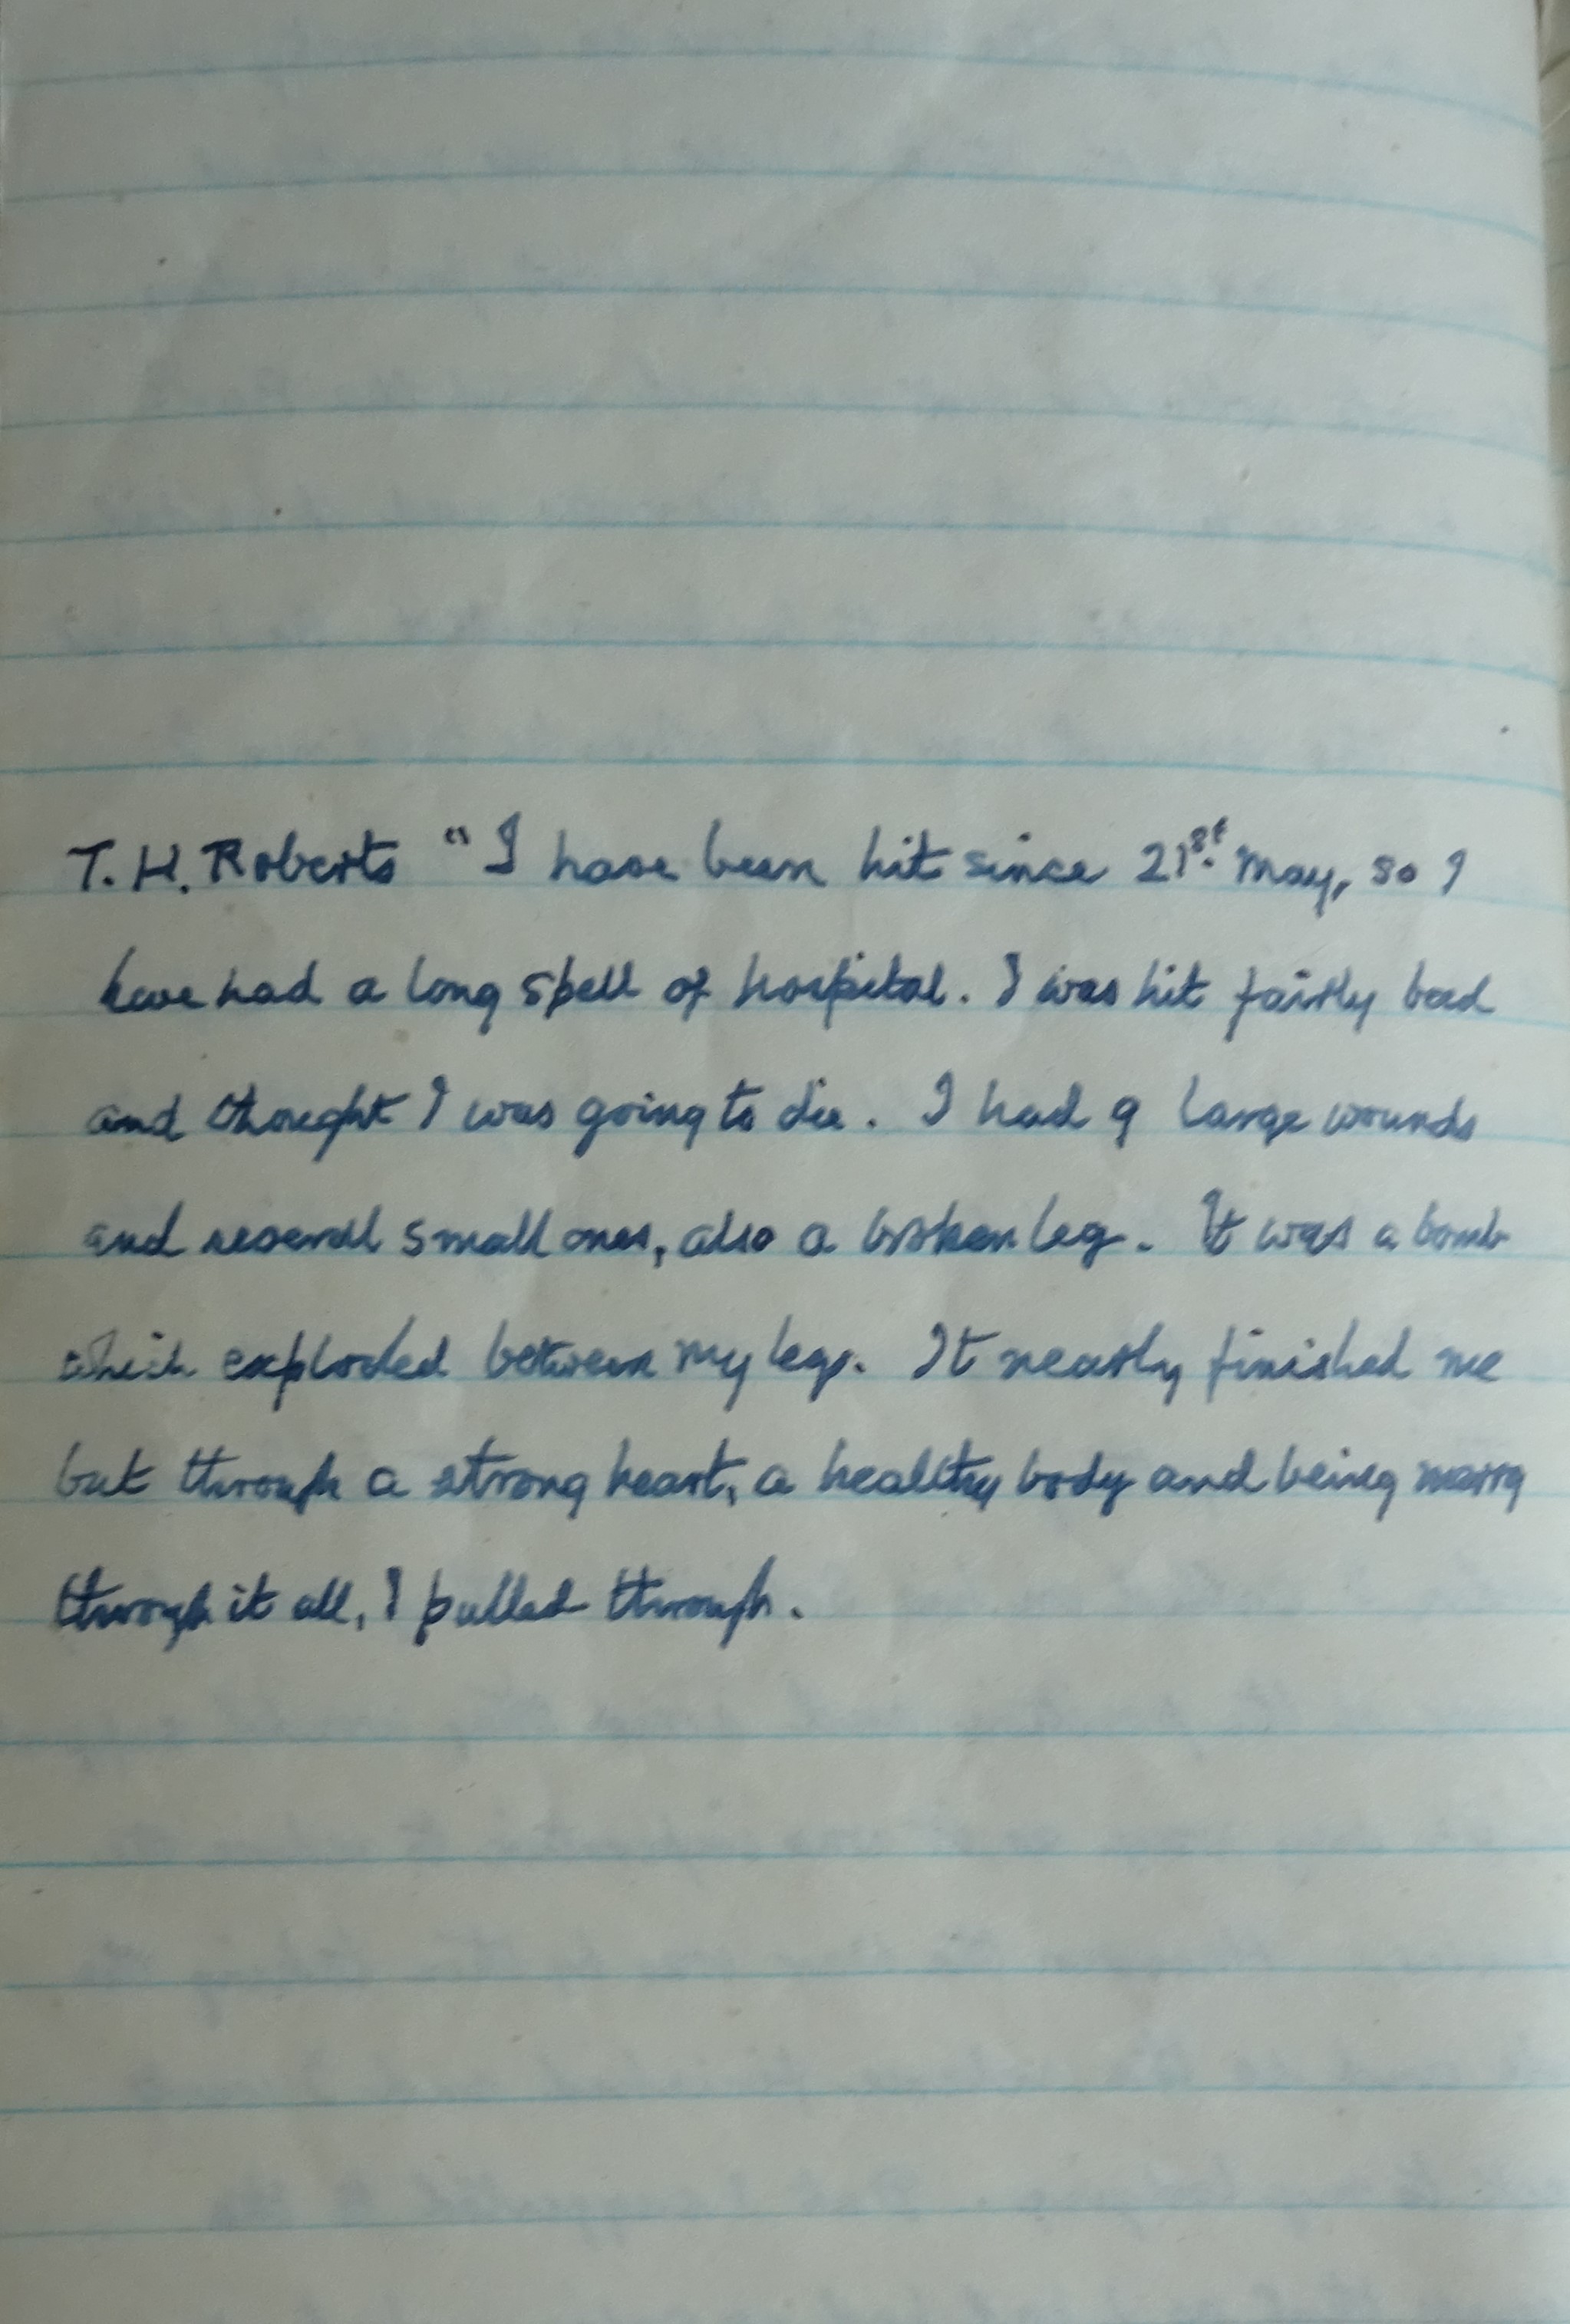 T. H. Roberts "I have been hit since 21st. May, so I
have had a long spell of hospital. I was hit fairly bad
and thought I was going to die. I had 9 large wounds
and several small ones, also a broken leg. It was a bomb
which exploded between my legs. It nearly finished me
but through a strong heart, a healthy body and being merry
through it all, I pulled through.